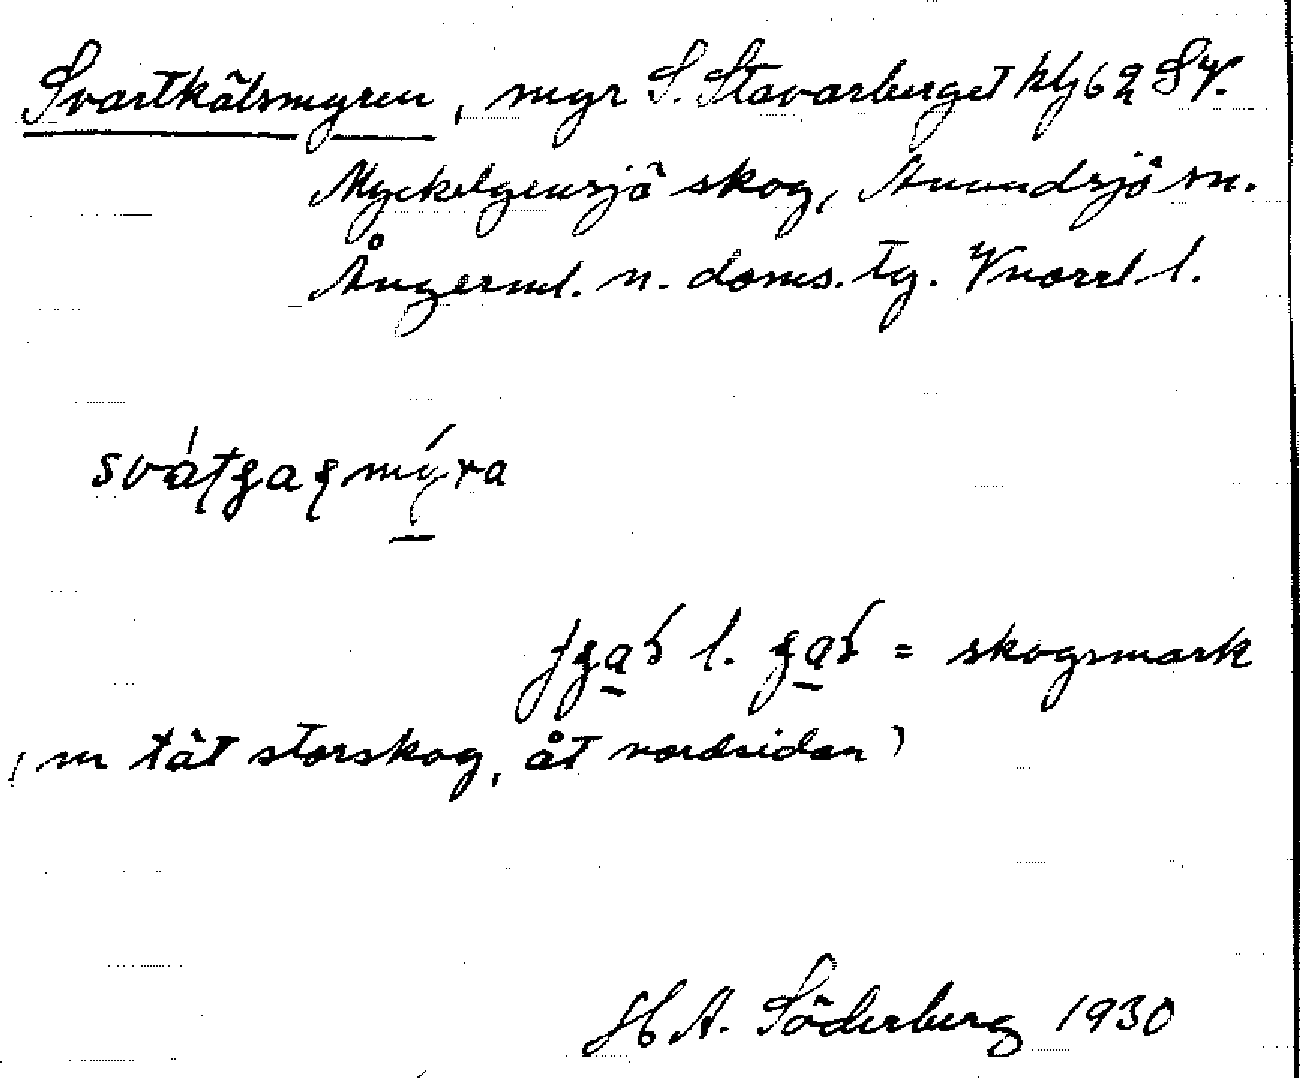 Svartkälsmyren, myr S. Stavarberget hlg 62 SV.
Myckelgensjö skog, Anundsjö sn.
Ångerml. n. doms. tg. Vnorrl l.
l. = skogsmark
(m tät storskog, åt nordsidan)
H A. Söderberg 1930